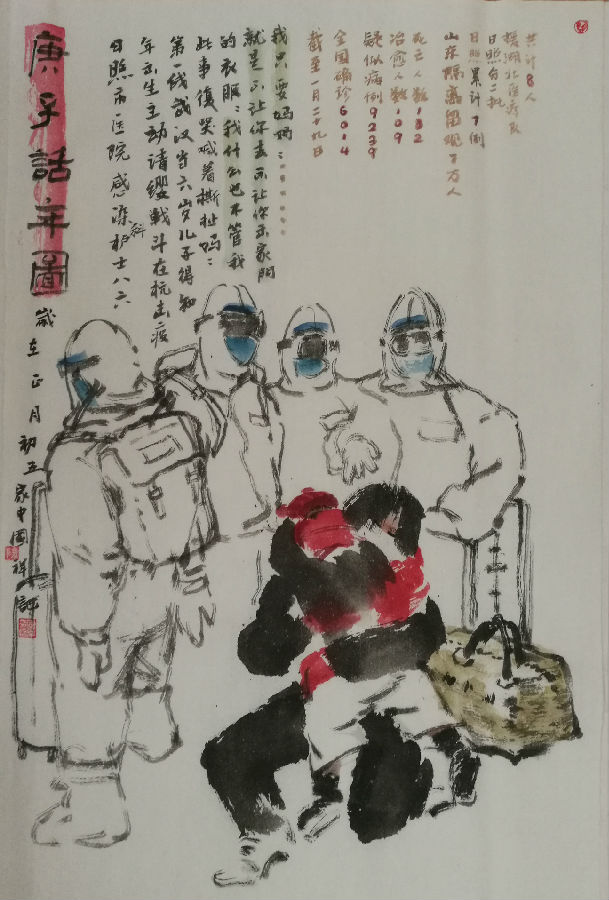 庚子話年圖
歲在正月初五家中国祥
日照市医院感染科护士八六
年出生主动请缨战斗在抗击疫
第一线武汉当六岁儿子得知
此事後哭喊着撕扯妈：
的衣服我什么也不管我
就是不让你去不让你去家門
我只要妈妈……
截至一月二十九日
全国确诊6014
疑似病例9239
治愈人数109
死亡人数132
山东隔离留观了万人
日照累计7例
日照台二批
援湖北医疗队
共计8人